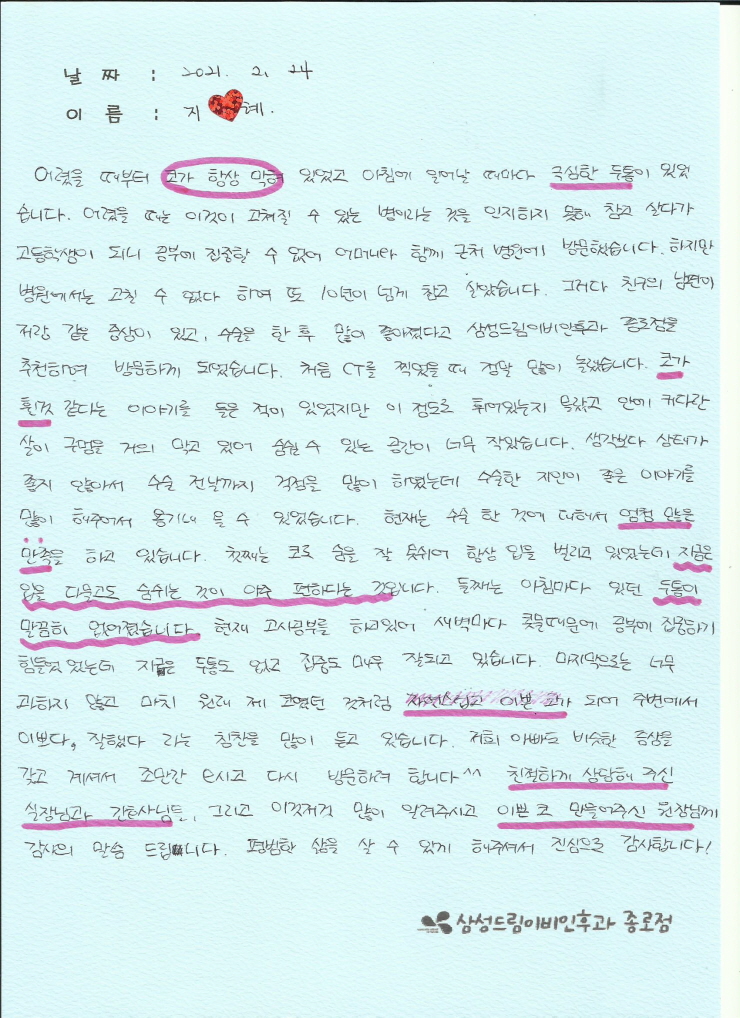 날 짜 : 2021. 2. 24
이 름 : 지 혜.
어렸을 때부터 코가 항상 막혀 있었고 아침에 일어날 때마다 극심한 두통이 있었
습니다. 어렸을 때는 이것이 고쳐질 수 있는 병이라는 것을 인지하지 못해 참고 살다가
고등학생이 되니 공부에 집중할 수 없어 어머니와 함께 근처 병원에 방문했습니다. 하지만
병원에서는 고칠 수 없다 하여 또 10년이 넘게 참고 살았습니다. 그러다 친구의 남편이
저랑 같은 증상이 있고, 수술을 한 후 많이 좋아졌다고 삼성드림이비인후과 종로점을
추천하여 방문하게 되었습니다. 처음 CT를 찍었을 때 정말 많이 놀랐습니다. 코가
휜것 같다는 이야기를 들은 적이 있었지만 이 정도로 휘어있는지 몰랐고 안에 커다란
살이 구멍을 거의 막고 있어 숨쉴 수 있는 공간이 너무 작았습니다. 생각보다 상태가
좋지 않아서 수술 전날까지 걱정을 많이 하였는데 수술한 지인이 좋은 이야기를
많이 해주어서 용기내 올 수 있었습니다. 현재는 수술 한 것에 대해서 엄청 많은
만족을 하고 있습니다. 첫째는 코로 숨을 잘 못쉬어 항상 입을 벌리고 있었는데 지금은
입을 다물고도 숨쉬는 것이 아주 편하다는 것입니다. 둘째는 아침마다 있던 두통이
말끔히 없어졌습니다. 현재 고시공부를 하고있어 새벽마다 콧물때문에 공부에 집중하기
힘들었었는데 지금은 두통도 없고 집중도 매우 잘되고 있습니다. 마지막으로는 너무
과하지 않고 마치 원래 제 코였던 것처럼 자연스럽고 이쁜 코가 되어 주변에서
이쁘다, 잘했다 라는 칭찬을 많이 듣고 있습니다. 저희 아빠도 비슷한 증상을
갖고 계셔서 조만간 모시고 다시 방문하려 합니다^^ 친절하게 상담해 주신
실장님과 간호사님들, 그리고 이것저것 많이 알려주시고 이쁜 코 만들어주신 원장님께
감사의 말씀 드립니다. 평범한 삶을 살 수 있게 해주셔서 진심으로 감사합니다!
삼성드림이비인후과 종로점